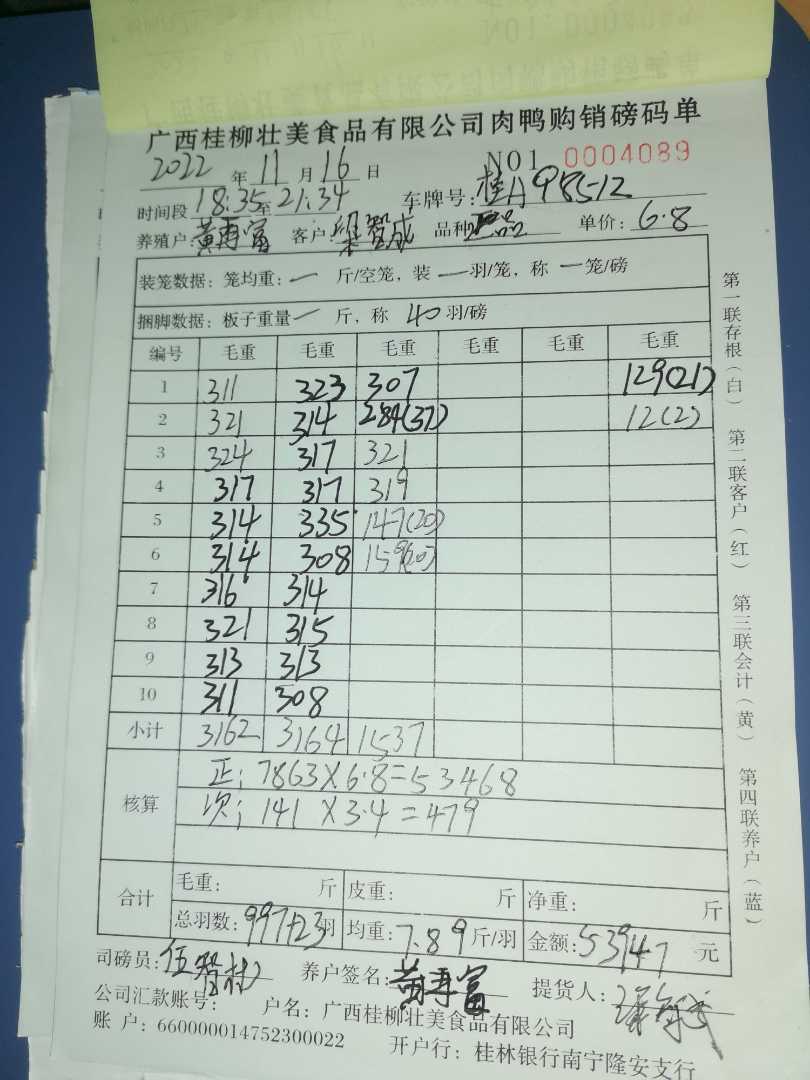 广西桂柳壮美食品有限公司肉鸭购销磅码单
2022 年 11 月 16 日 NO1 0004089
时间段 18:35 至 21:34 车牌号: 桂A98512
养殖户 黄再富 客户 梁智成 品种 正品 单价: 6.8
装笼数据: 笼均重: 一 斤/空笼, 装 一 羽/笼, 称 一 笼/磅
捆脚数据: 板子重量 一 斤, 称 40 羽/磅
编号 毛重 毛重 毛重 毛重 毛重 毛重
1 311 323 307 129(21)
2 321 314 284(37) 12(2)
3 324 317 321
4 317 317 319
5 314 335 147(20)
6 314 308 159(20)
7 316 314
8 321 315
9 313 313
10 311 308
小计 3162 3164 1537
核算 正: 7863×6.8=53468
次: 141×3.4=479
合计 毛重: 斤 皮重: 斤 净重: 斤
总羽数: 997+23 羽 均重: 7.89 斤/羽 金额: 53947 元
司磅员: 伍智 养户签名: 黄再富 提货人:
公司汇款账号: 户名: 广西桂柳壮美食品有限公司
账 户: 660000014752300022 开户行: 桂林银行南宁隆安支行
第一联存根(白) 第二联客户(红) 第三联会计(黄) 第四联养户(蓝)